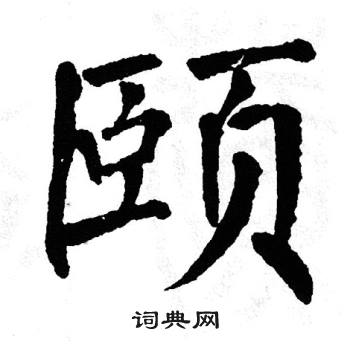 颐
词典网